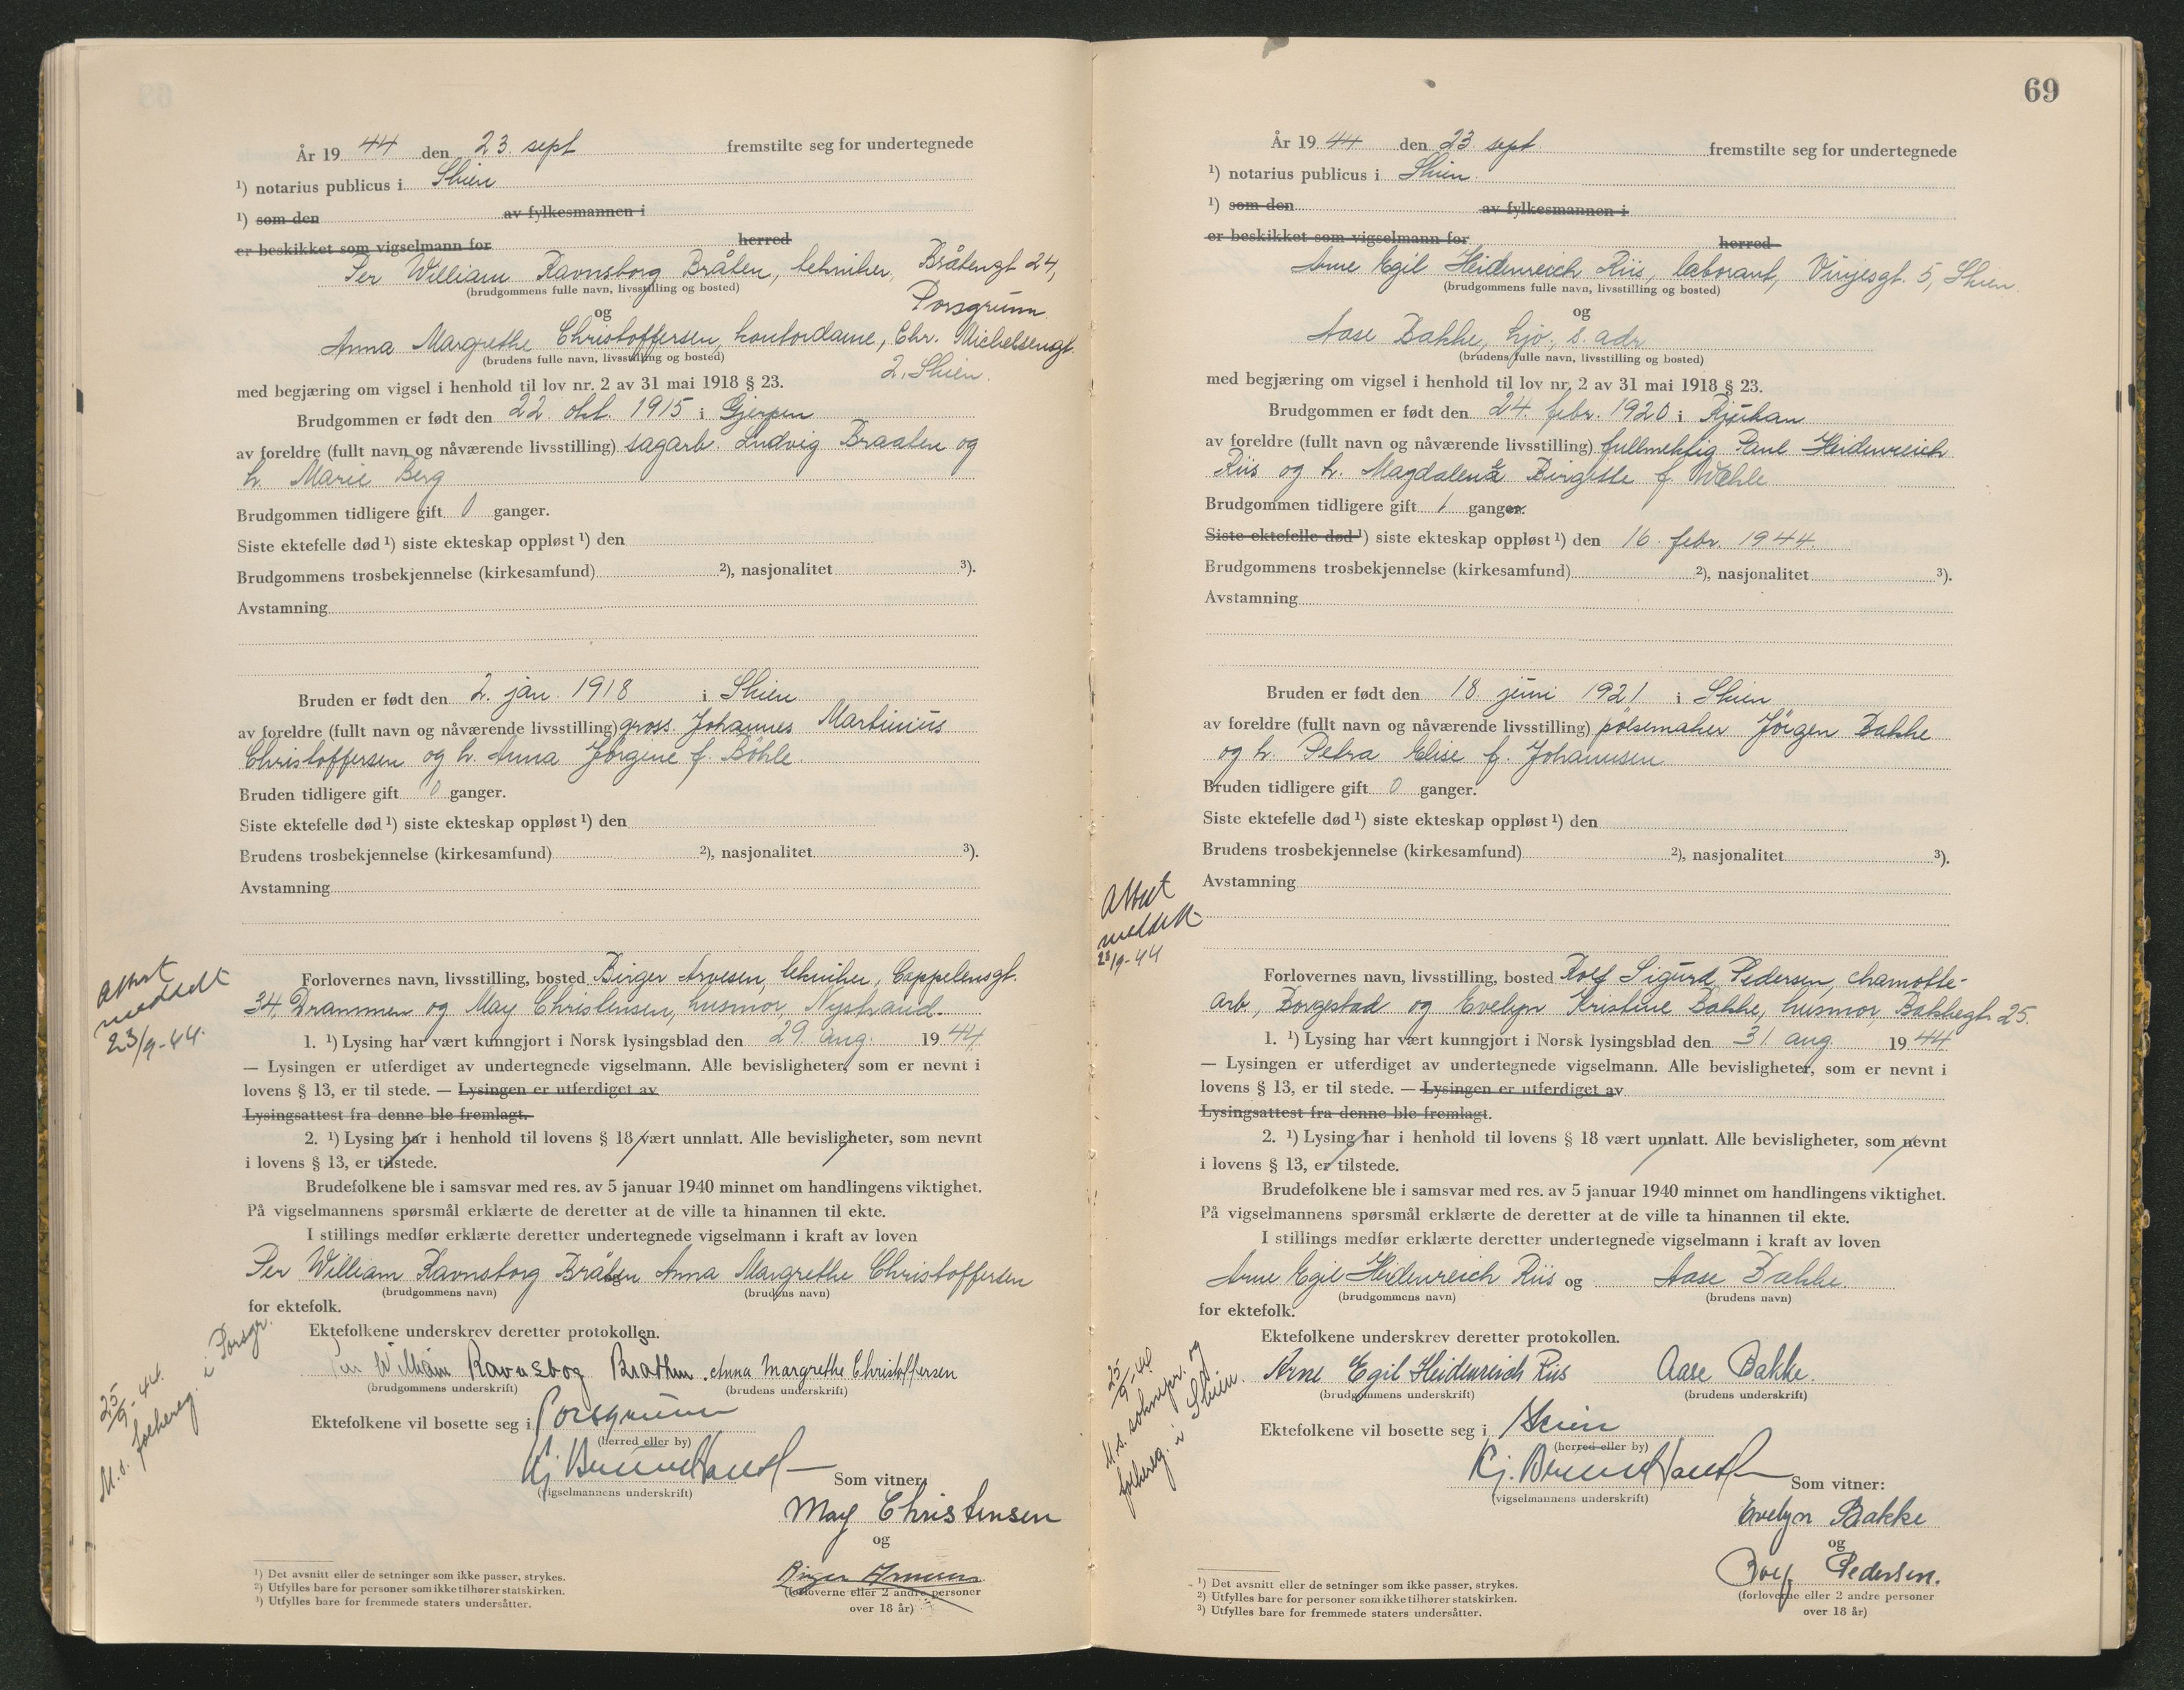 År 1944 den 23. sept fremstilte seg for undertegnede
¹) notarius publicus i Skien
¹) som den av fylkesmannen i
er beskikket som vigselmann for herred
Per William Ravnsborg Bråten, tekniker, Bråtengt 24,
(brudgommens fulle navn, livsstilling og bosted)
Porsgrunn
og
Anna Margrethe Christoffersen, kontordame, Chr. Michelsensgt.
(brudens fulle navn, livsstilling og bosted)
2, Skien.
med begjæring om vigsel i henhold til lov nr. 2 av 31 mai 1918 § 23.
Brudgommen er født den 22. okt. 1915 i Gjerpen
av foreldre (fullt navn og nåværende livsstilling) sagarb. Ludvig Braaten og
h. Marie Berg
Brudgommen tidligere gift 0 ganger.
Siste ektefelle død ¹) siste ekteskap oppløst ¹) den
Brudgommens trosbekjennelse (kirkesamfund) ²), nasjonalitet ³).
Avstamning
Bruden er født den 2. jan. 1918 i Skien
av foreldre (fullt navn og nåværende livsstilling) gross. Johannes Martinius
Christoffersen og h. Anna Jørgine f. Böhle.
Bruden tidligere gift 0 ganger.
Siste ektefelle død ¹) siste ekteskap oppløst ¹) den
Brudens trosbekjennelse (kirkesamfund) ²), nasjonalitet ³).
Avstamning
Attest
meddelt
23/9-44.
Forlovernes navn, livsstilling, bosted Birger Arvesen, tekniker, Cappelensgt.
34, Drammen og May Christensen, husmor, Nystrand.
1. ¹) Lysing har vært kunngjort i Norsk lysingsblad den 29. aug. 1944
— Lysingen er utferdiget av undertegnede vigselmann. Alle bevisligheter, som er nevnt i
lovens § 13, er til stede. — Lysingen er utferdiget av
Lysingsattest fra denne ble fremlagt.
2. ¹) Lysing har i henhold til lovens § 18 vært unnlatt. Alle bevisligheter, som nevnt
i lovens § 13, er tilstede.
Brudefolkene ble i samsvar med res. av 5 januar 1940 minnet om handlingens viktighet.
På vigselmannens spørsmål erklærte de deretter at de ville ta hinannen til ekte.
I stillings medfør erklærte deretter undertegnede vigselmann i kraft av loven
Per William Ravnsborg Bråten og Anna Margrethe Christoffersen
(brudgommens navn) (brudens navn)
for ektefolk.
Ektefolkene underskrev deretter protokollen.
Per William Ravnsbog Bråthen. Anna Margrethe Christoffersen
(brudgommens underskrift) (brudens underskrift)
25/9-44.
M.s. folkereg. i Porsgr.
Ektefolkene vil bosette seg i Porsgrunn
(herred eller by)
(vigselmannens underskrift)
Som vitner:
May Christensen
og
Birger Arvesen
(forloverne eller 2 andre personer
over 18 år)
¹) Det avsnitt eller de setninger som ikke passer, strykes.
²) Utfylles bare for personer som ikke tilhører statskirken.
³) Utfylles bare for fremmede staters undersåtter.
69
År 1944 den 23. sept fremstilte seg for undertegnede
¹) notarius publicus i Skien.
¹) som den av fylkesmannen i
er beskikket som vigselmann for herred
Arne Egil Heidenreich Riis, laborant, Vinjesgt. 5, Skien.
(brudgommens fulle navn, livsstilling og bosted)
og
Aase Bakke, hjv., s. adr
(brudens fulle navn, livsstilling og bosted)
med begjæring om vigsel i henhold til lov nr. 2 av 31 mai 1918 § 23.
Brudgommen er født den 24. febr. 1920 i Rjukan
av foreldre (fullt navn og nåværende livsstilling) fullmektig Paul Heidenreich
Riis og h. Magdalene Birgitte f. Wæhle
Brudgommen tidligere gift 1 ganger.
Siste ektefelle død ¹) siste ekteskap oppløst ¹) den 16. febr. 1944.
Brudgommens trosbekjennelse (kirkesamfund) ²), nasjonalitet ³).
Avstamning
Bruden er født den 18. juni 1921 i Skien
av foreldre (fullt navn og nåværende livsstilling) pølsemaker Jörgen Bakke
og h. Petra Elise f. Johannsen
Bruden tidligere gift 0 ganger.
Siste ektefelle død ¹) siste ekteskap oppløst ¹) den
Brudens trosbekjennelse (kirkesamfund) ²), nasjonalitet ³).
Avstamning
Attest
meddelt
23/9-44
Forlovernes navn, livsstilling, bosted Rolf Sigurd Pedersen, chamotte-
arb., Borgestad og Evelyn Kristine Bakke, husmor, Bakkegt 25.
1. ¹) Lysing har vært kunngjort i Norsk lysingsblad den 31 aug. 1944
— Lysingen er utferdiget av undertegnede vigselmann. Alle bevisligheter, som er nevnt i
lovens § 13, er til stede. — Lysingen er utferdiget av
Lysingsattest fra denne ble fremlagt.
2. ¹) Lysing har i henhold til lovens § 18 vært unnlatt. Alle bevisligheter, som nevnt
i lovens § 13, er tilstede.
Brudefolkene ble i samsvar med res. av 5 januar 1940 minnet om handlingens viktighet.
På vigselmannens spørsmål erklærte de deretter at de ville ta hinannen til ekte.
I stillings medfør erklærte deretter undertegnede vigselmann i kraft av loven
Arne Egil Heidenreich Riis og Aase Bakke.
(brudgommens navn) (brudens navn)
for ektefolk.
Ektefolkene underskrev deretter protokollen.
Arne Egil Heidenreich Riis Aase Bakke.
(brudgommens underskrift) (brudens underskrift)
25/9-44
M.s. soknepr. og
folkereg. i Skien.
Ektefolkene vil bosette seg i Skien
(herred eller by)
(vigselmannens underskrift)
Som vitner:
Evelyn Bakke
og
Rolf Pedersen.
(forloverne eller 2 andre personer
over 18 år)
¹) Det avsnitt eller de setninger som ikke passer, strykes.
²) Utfylles bare for personer som ikke tilhører statskirken.
³) Utfylles bare for fremmede staters undersåtter.